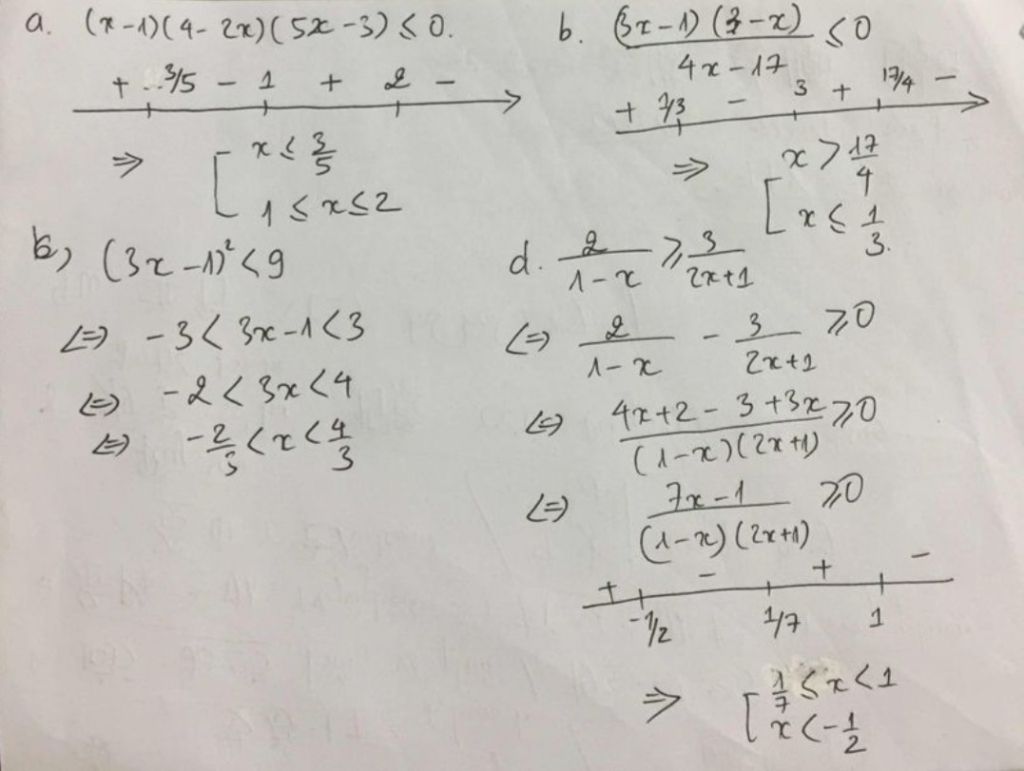 a. (x-1)(4-2x)(5x-3) ≤ 0.
+ 3/5 - 1 + 2 -
⇒ [ x ≤ 3/5
1 ≤ x ≤ 2
b. (3x-1)(3-x)/(4x-17) ≤ 0
+ 1/3 - 3 + 17/4 -
⇒ [ x > 17/4
x ≤ 1/3.
c) (3x-1)² < 9
⇔ -3 < 3x-1 < 3
⇔ -2 < 3x < 4
⇔ -2/3 < x < 4/3
d. 2/(1-x) ≥ 3/(2x+1)
⇔ 2/(1-x) - 3/(2x+1) ≥ 0
⇔ (4x+2-3+3x)/((1-x)(2x+1)) ≥ 0
⇔ (7x-1)/((1-x)(2x+1)) ≥ 0
+ - + -
-1/2 1/7 1
⇒ [ 1/7 ≤ x < 1
x < -1/2